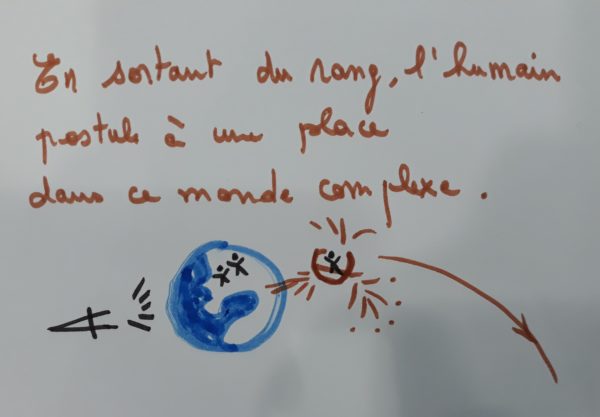 En sortant du rang, l'humain
postule à une place
dans ce monde complexe.